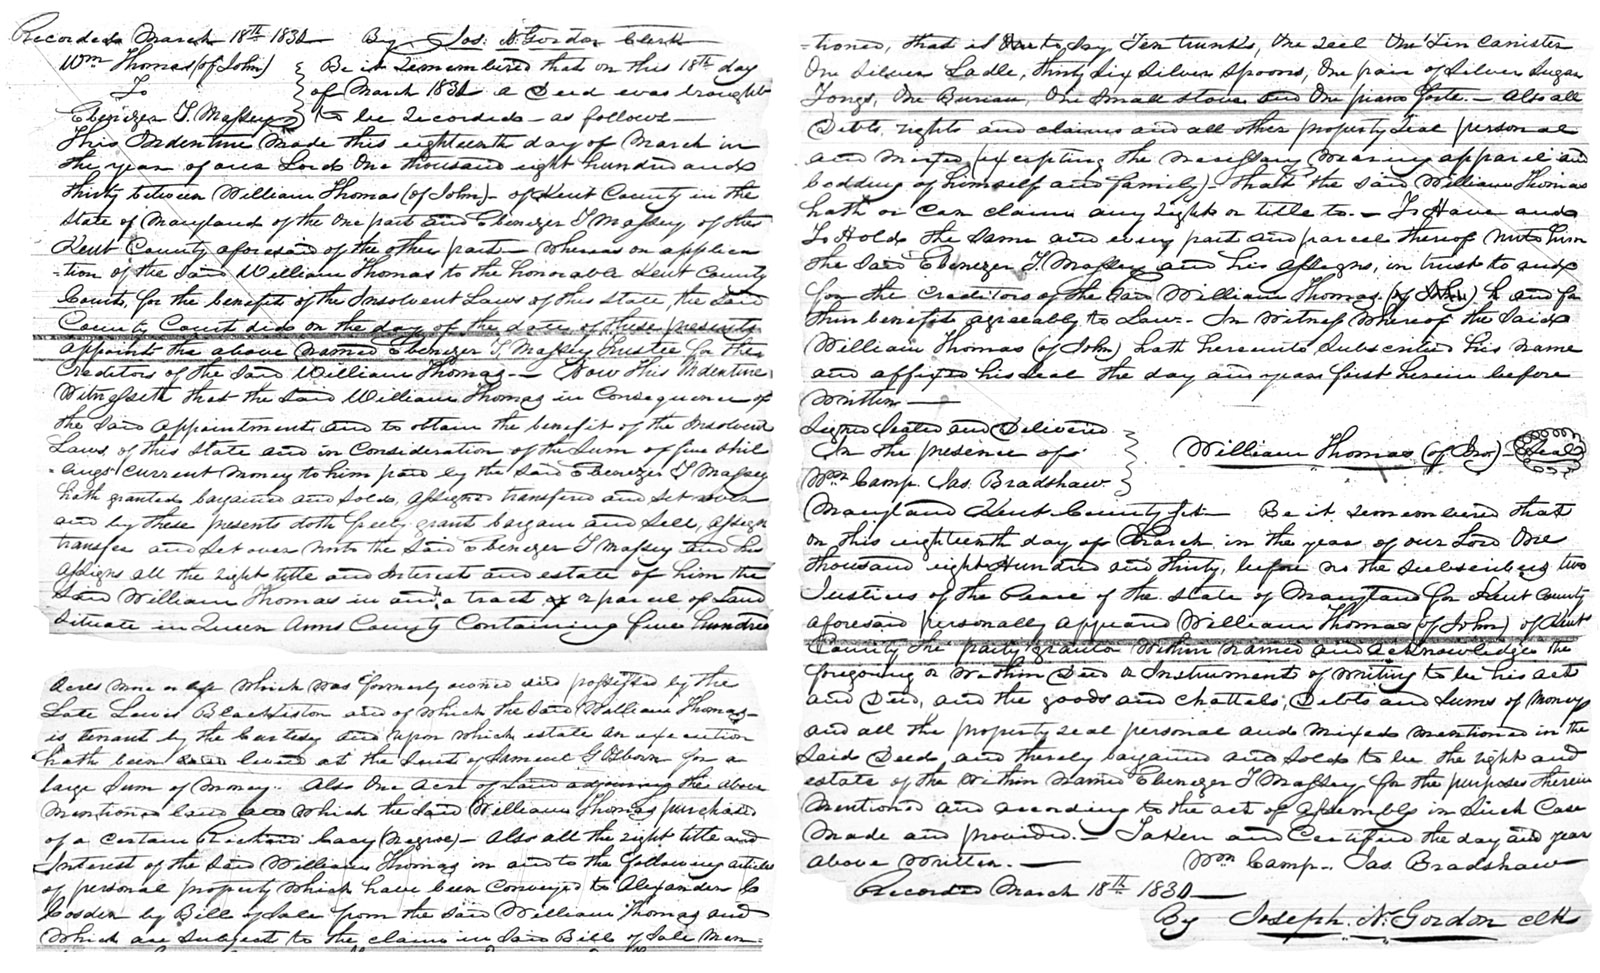 Recorded March 18th 1830 By Jos. N. Gordon Clerk
Wm Thomas (of John) } Be it remembered that on this 18th day
To } of March 1830 a Deed was brought
Ebenezer T. Massey } to be recorded as follows —
This Indenture Made this eighteenth day of March in
the year of our Lord One thousand eight hundred and
thirty between William Thomas (of John) of Kent County in the
State of Maryland of the One part and Ebenezer T Massey of the
Kent County aforesaid of the other part – Whereas on applica
-tion of the Said William Thomas to the honorable Kent County
Court, for the benefit of the Insolvent Laws of this State, the Said
County Court did on the day of the date of these presents
appoint the above named Ebenezer T. Massey Trustee for the
Creditors of the Said William Thomas — Now this Indenture
Witnesseth that the Said William Thomas in Consequence of
the Said appointment and to obtain the benefit of the Insolvent
Laws, of this State and in Consideration of the Sum of five shil
-lings current money to him paid by the Said Ebenezer T Massey
hath granted bargained and Sold, assigned transfered and Set over
and by these presents doth freely grant bargain and Sell, assign
transfer and Set over unto the Said Ebenezer T Massey and his
assigns all the right title and Interest and estate of him the
Said William Thomas in and a tract or parcel of Land
Situate in Queen Anns County Containing five hundred
acres more or less which was formerly owned and possessed by the
Late Lewis Blackiston and of which the Said William Thomas
is tenant by the Curtesy and upon which estate an execution
hath been levied at the Suit of Samuel G Osborn for a
large Sum of Money. Also One Acre of Land adjoining the above
mentioned land which the Said William Thomas purchased
of a certain Richard Lacy (Negroe) – Also all the right title and
Interest of the Said William Thomas in and to the following articles
of personal property which have been Conveyed to Alexander
Cosden by Bill of Sale from the Said William Thomas and
which are Subject to the claim in Said Bill of Sale men-
-tioned, that is to Say Ten trunks, One Tin Canister
One Silver Ladle, thirty Six Silver Spoons, One pair of Silver Sugar
Tongs, One Bureau, One Small Stove and One piano forte. – Also all
Debts, rights and claims and all other property real personal
and mixed, (excepting the necessary wearing apparel and
bedding of himself and family) that the Said William Thomas
hath or can claim any right or title to. – To Have and
To Hold the Same and every part and parcel thereof unto him
the Said Ebenezer T. Massey and his assigns, in trust to and
for the creditors of the Said William Thomas (of John) and for
their benefit agreeably to Law – In Witness Whereof the Said
William Thomas (of John) hath hereunto Subscribed his name
and affixed his Seal the day and year first herein before
Written —
Signed Sealed and Delivered }
In the presence of } William Thomas (of Jno) Seal
Wm Camp Jas. Bradshaw }
Maryland Kent County Sct – Be it remembered that
on this eighteenth day of March in the year of our Lord One
thousand eight Hundred and thirty, before us the Subscribers two
Justices of the Peace of the State of Maryland for Kent County
aforesaid personally appeared William Thomas (of John) of Kent
County the party grantor within named and acknowledged the
foregoing or within Deed or Instrument of writing to be his act
and Deed, and the goods and chattels, Debts and Sums of Money
and all the property real personal and mixed mentioned in the
Said Deed, and thereby bargained and Sold to be the right and
estate of the within named Ebenezer T Massey for the purposes therein
mentioned and according to the act of assembly in Such Case
made and provided. – Taken and Certified the day and year
above Written. — Wm Camp – Jas. Bradshaw
Recorded March 18th 1830 —
By Joseph. N. Gordon Clk